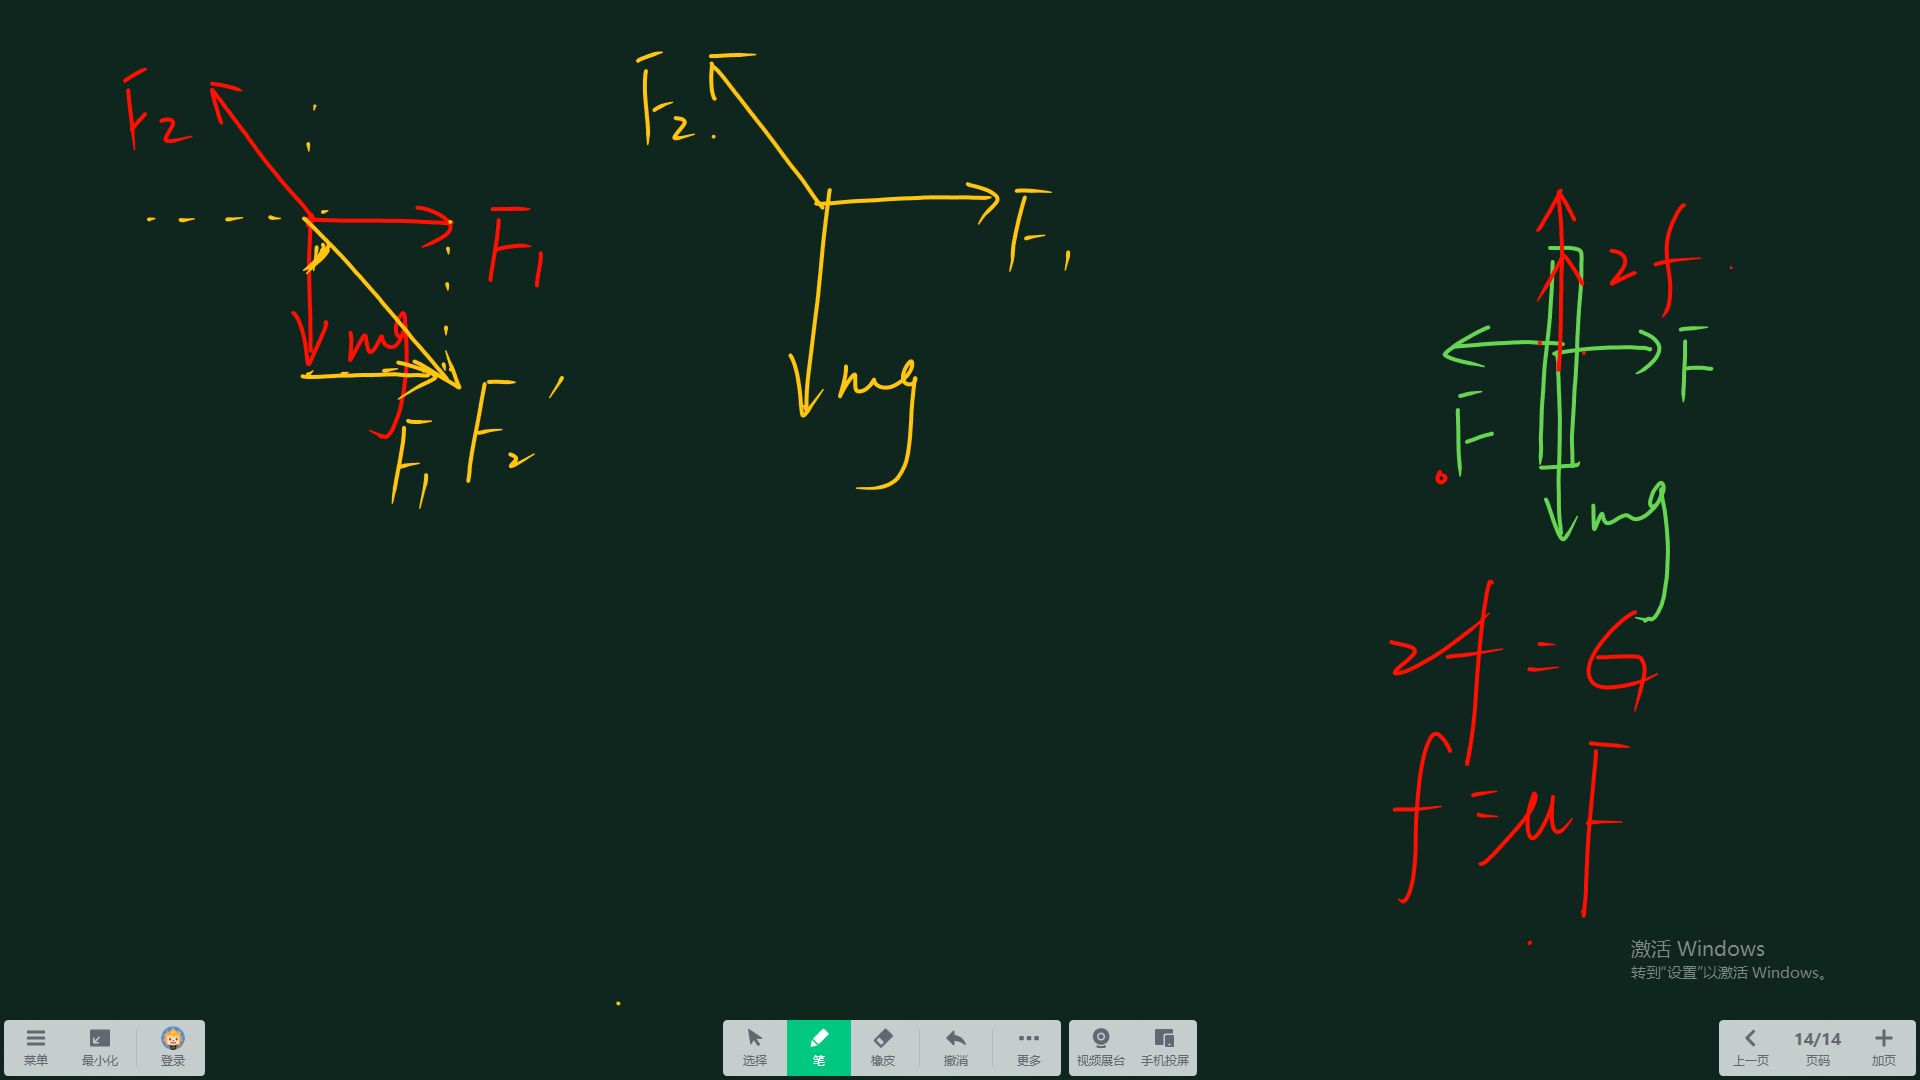 F2
F1
mg
F2'
F1
F2
F1
mg
2f
F
F
mg
2f=G
f=μF
激活 Windows
转到“设置”以激活 Windows。
菜单
最小化
登录
选择
笔
橡皮
撤消
更多
视频展台
手机投屏
上一页
14/14
页码
加页